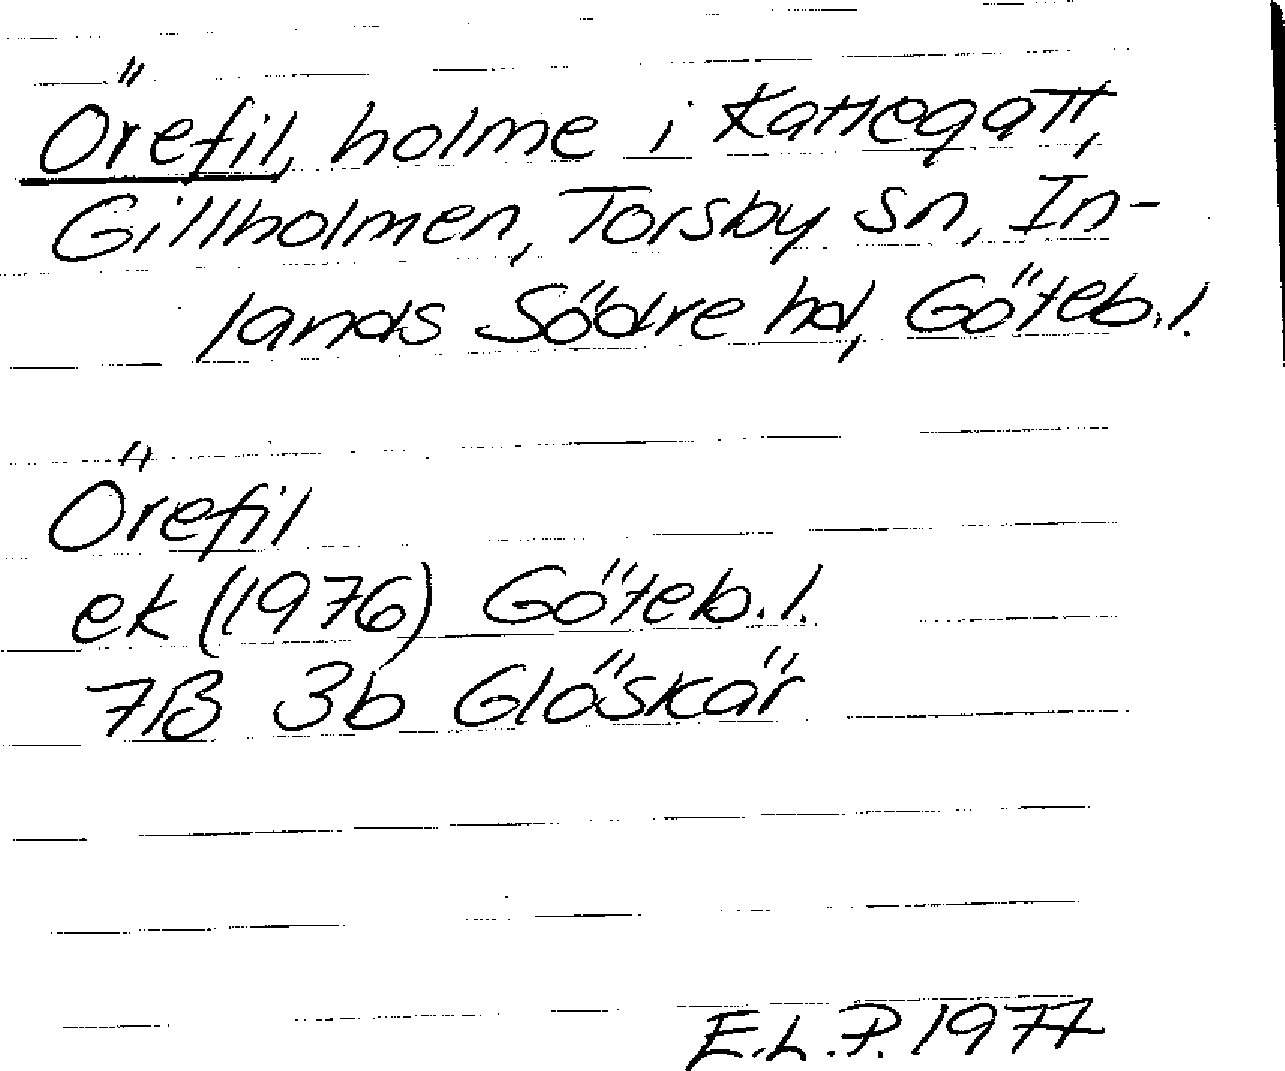 Örefil, holme i Kattegatt,
Gillholmen, Torsby sn, In-
lands Södre hd, Göteb.l.
Örefil
ek (1976) Göteb.l.
7B 3b Glöskär
E.L.P. 1977